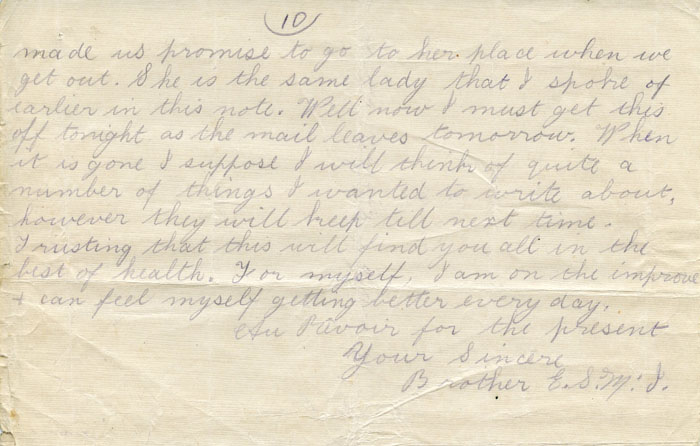 10
made us promise to go to her place when we
get out. She is the same lady that I spoke of
earlier in this note. Well now I must get this
off tonight as the mail leaves tomorrow. When
it is gone I suppose I will think of quite a
number of things I wanted to write about,
however they will keep till next time.
Trusting that this will find you all in the
best of health. For myself, I am on the improve
+ can feel myself getting better every day.
Au Revoir for the present
Your Sincere
Brother E.S.M.J.